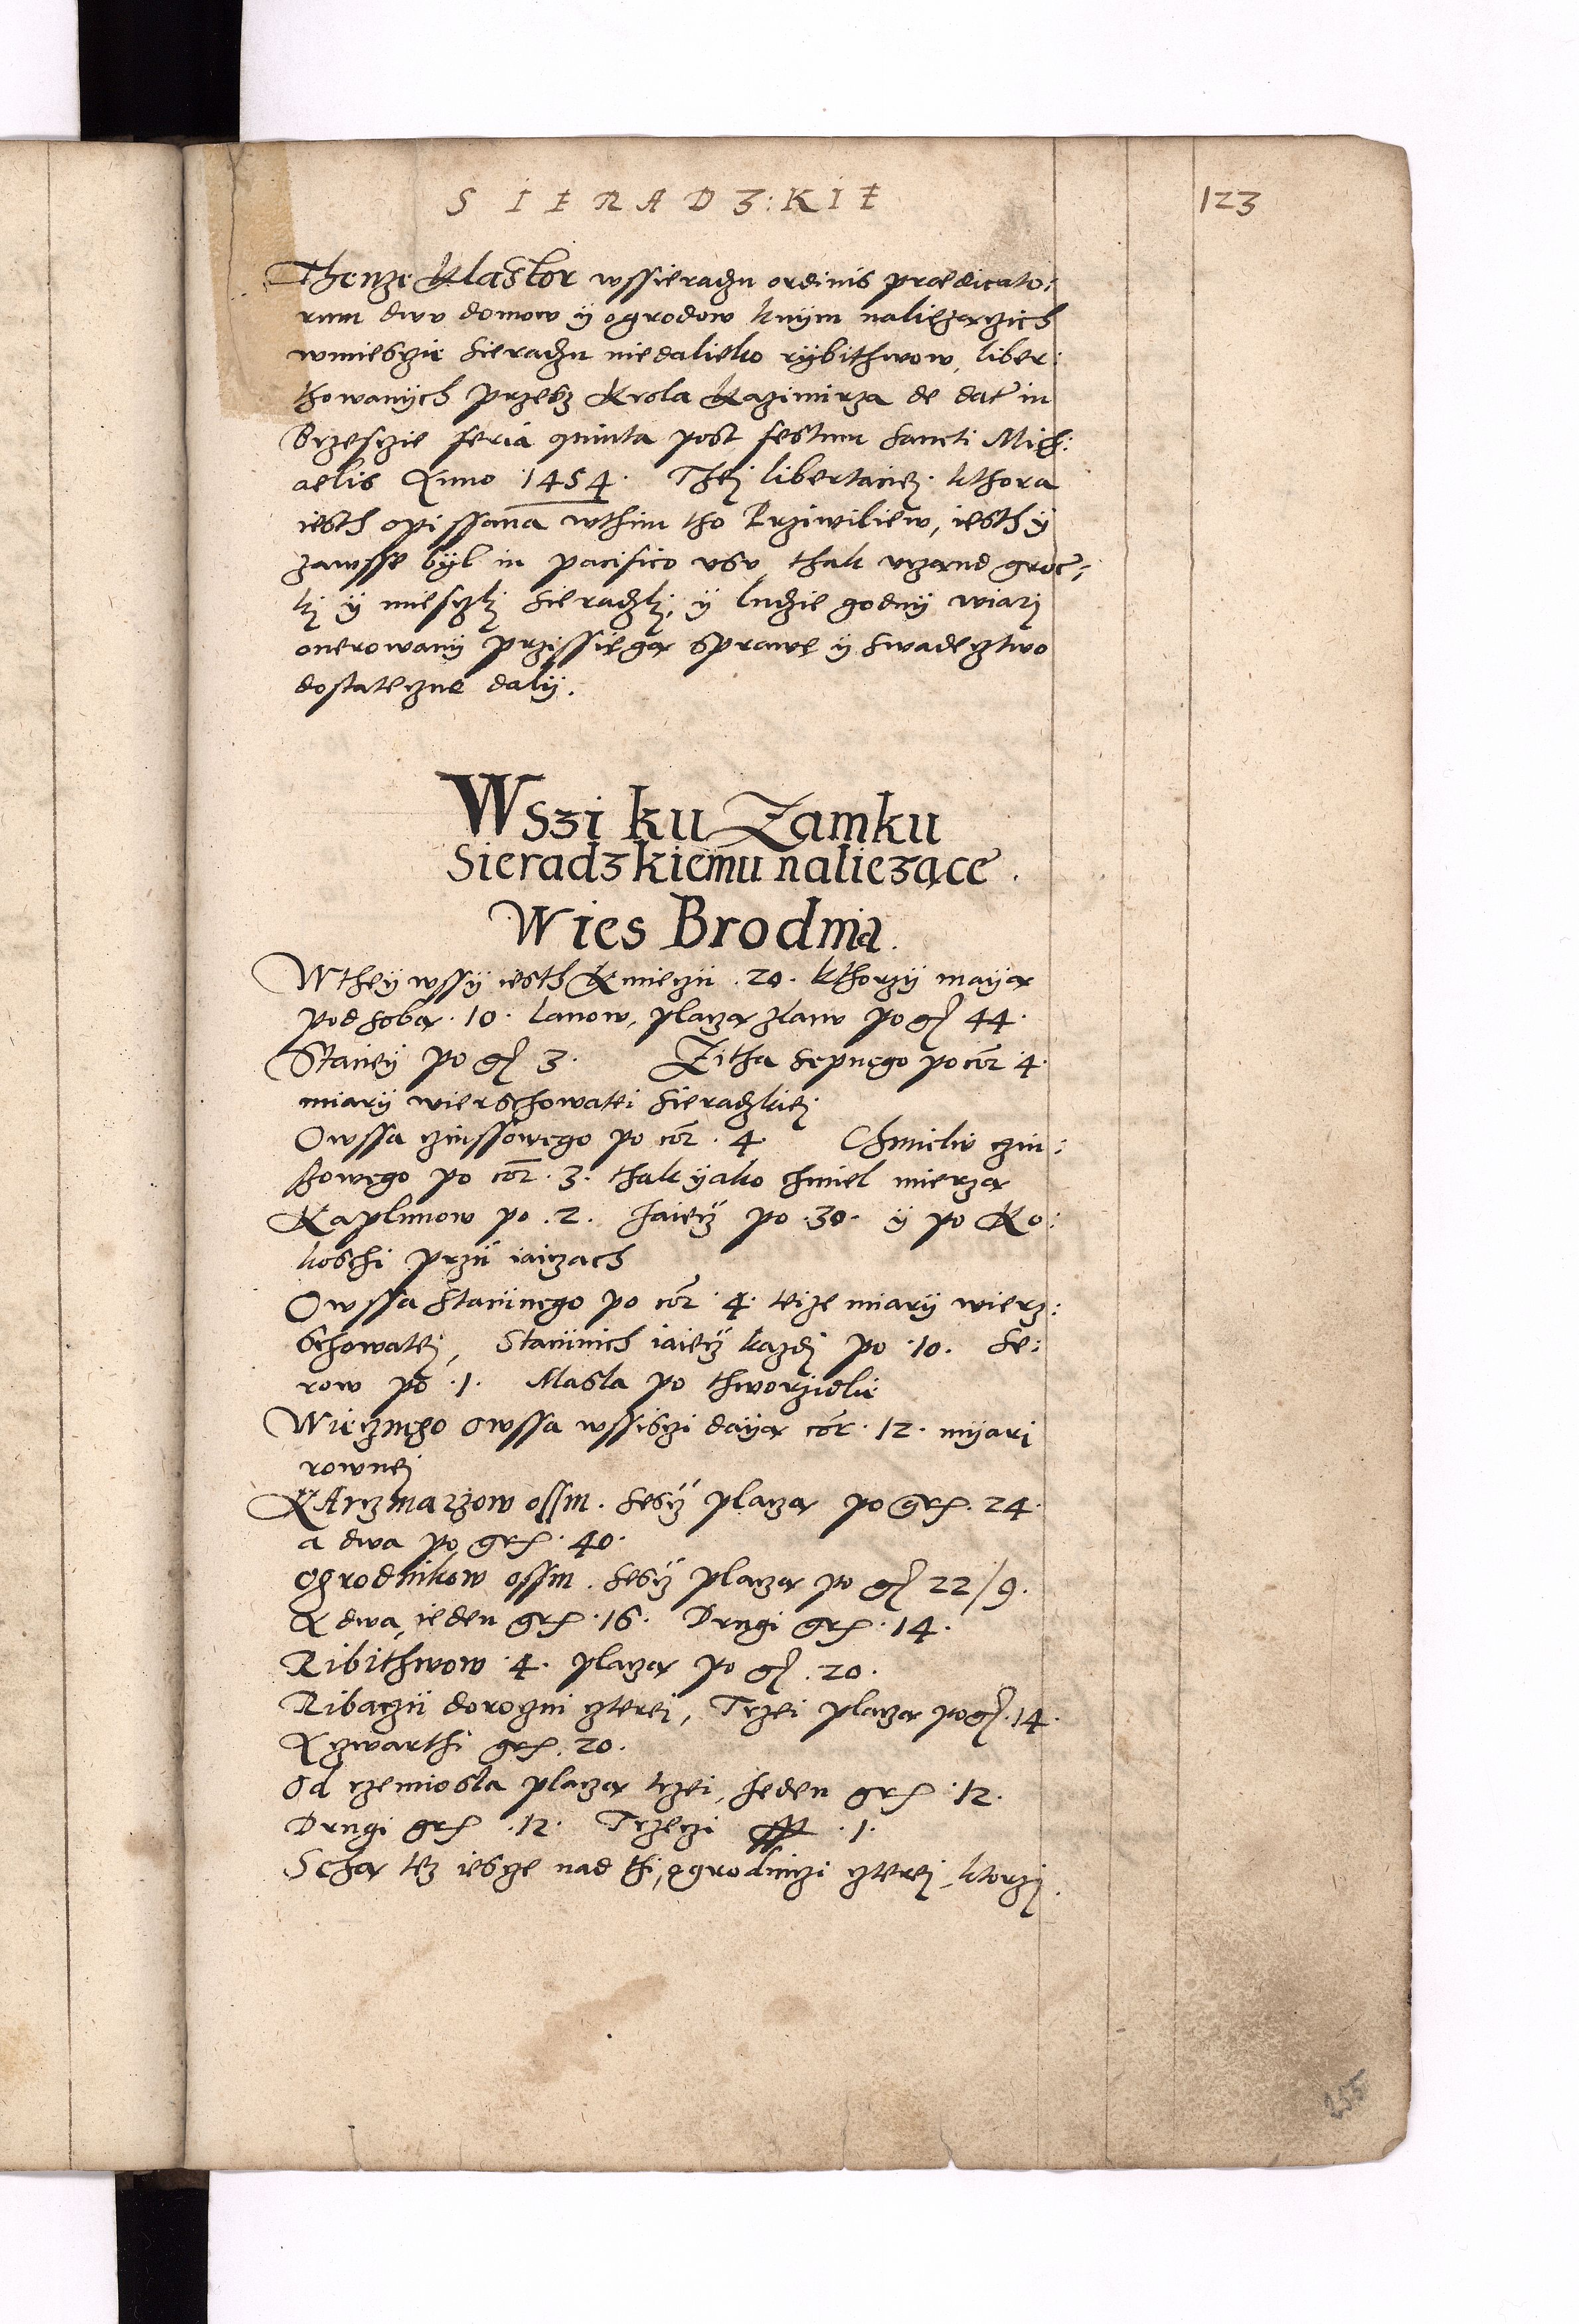 SIERADZ:KIE
123
Thenze Klastor wssieradzu ordinis prædicato:
rum dwu domow ÿ ogrodow knym naliezaczich
wmiesczie Sieradzu niedalieko rÿbithwow, liber:
thowanÿch przesz Krola Kazimirza de dat in
Brzesczie feria quinta post festum Sancti Mich:
aelis Anno 1454. Thej libertaciej kthora
iesth opissana wthim tho Prziwiliew, iesth ÿ
zawsse bÿl in pacifico usu thak urzand groc:
kj ÿ miesczkj Sieradzkj, ÿ ludzie godnÿ wiarj
onerowanÿ przissięga sprawe ÿ swadecztwo
dostateczne dalÿ.
Wszi ku Zamku
Sieradzkiemu naliezące.
Wies Brodnia.
Wtheÿ wssÿ iesth Kmieczii .20. kthorzÿ maÿa
pod soba .10. Lanow, placza zlanu po gr 44.
Staciey po gr 3. Zitha sepnego po cor 4.
miarÿ wierschowatei Sieradzkiej
Owssa czinssowego po cor .4. Chmielu czin:
showego po cor .3. thak ÿako chmiel mierza
Kaplunow po .2. Jaiecz po .30. ÿ po Ko:
koschi przÿ iaiczach
Owssa Staciinego po cor .4. teize miarÿ wierz:
schowatej, Staciinich iaiecz kazdj po .10. Se:
row po .1. Masla po thworzidlu
Wiecznego owssa wssisczi daÿa cor .12. mÿari
rownej
KArczmarzow ossm. Sescz placza po gr. 24.
a dwa po gr .40.
Ogrodnikow ossm. Sescz placza po gr 22/9.
A dwa, ieden gr .16. Drugi gr .14.
Ribithwow .4. placza po gr .20.
Ribaczii doroczni czterej, Trzei placza po gr .14.
Aczwarthi gr. 20.
Od rzemiosla placza trzei, Jeden gr .12.
Drugi gr .12. Trzeczi .1.
Scha tez iescze nad thi, ogrodniczi czterej, ktorzj
255